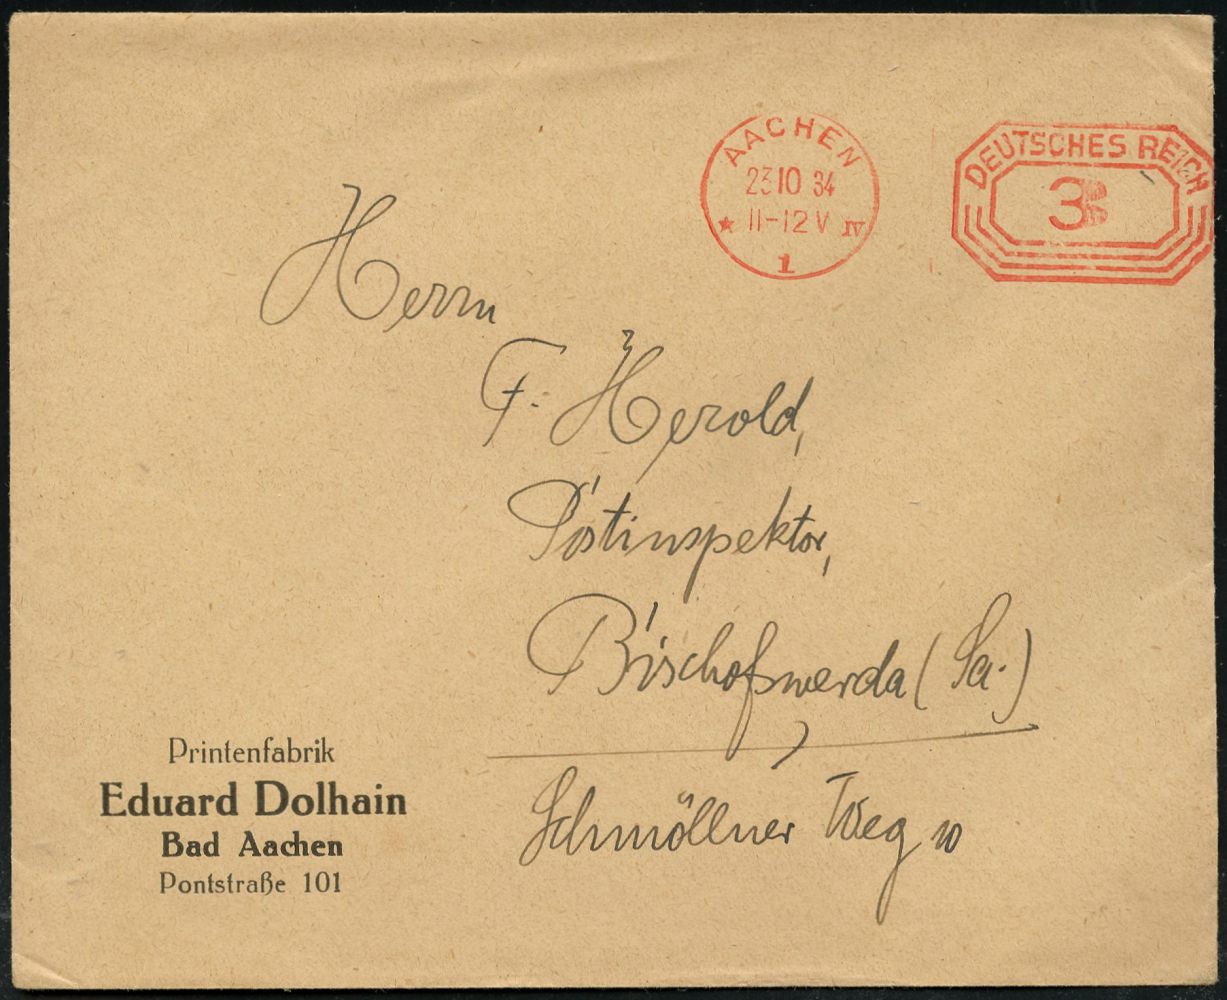 AACHEN
23.10.34
★ 11-12 V IV
1
DEUTSCHES REICH
3
Herrn
F. Herold,
Postinspektor,
Bischofswerda (Sa.)
Schmöllner Weg 10
Printenfabrik
Eduard Dolhain
Bad Aachen
Pontstraße 101